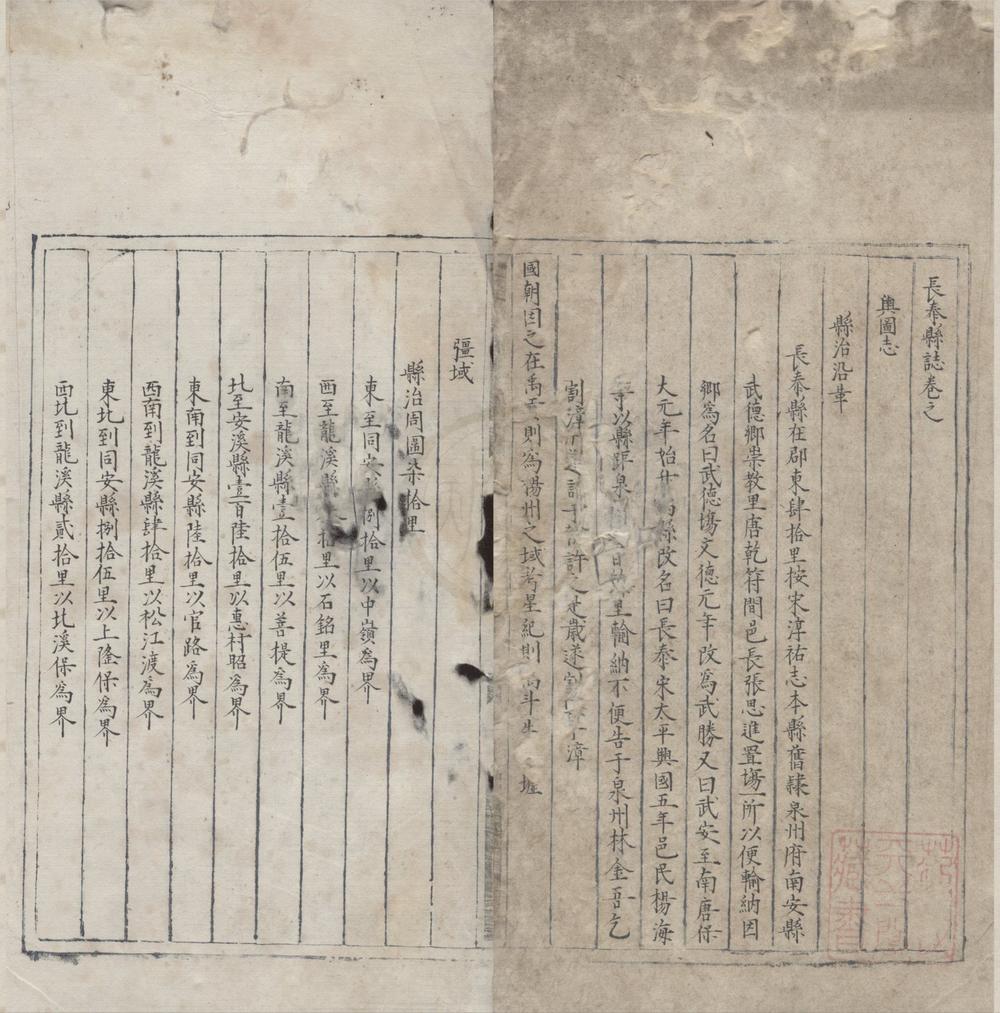 長泰縣誌卷之
輿圖志
縣治沿革
長泰縣在郡東肆拾里按宋淳祐志本縣舊隸泉州府南安縣
武德鄉崇教里唐乾符間邑長張思進置塲一所以便輸納因
鄉爲名曰武德塲文德元年改爲武勝又曰武安至南唐保
大元年始廾爲縣改名曰長泰宋太平興國五年邑民楊海
等以縣距泉 輸納不便告于泉州林金吾乞
割漳 許之是歲遂割 漳
國朝因之在禹貢則爲揚州之域考星紀則 斗牛 墟
疆域
縣治周圍柒拾里
東至同安 捌拾里以中嶺為界
西至龍溪縣 拾里以石銘里爲界
南至龍溪縣壹拾伍里以善提爲界
北至安溪縣壹百陸拾里以惠村昭爲界
東南到同安縣陸拾里以官路爲界
西南到龍溪縣肆拾里以松江渡爲界
東北到同安縣捌拾伍里以上隆保爲界
西北到龍溪縣貳拾里以北溪保爲界